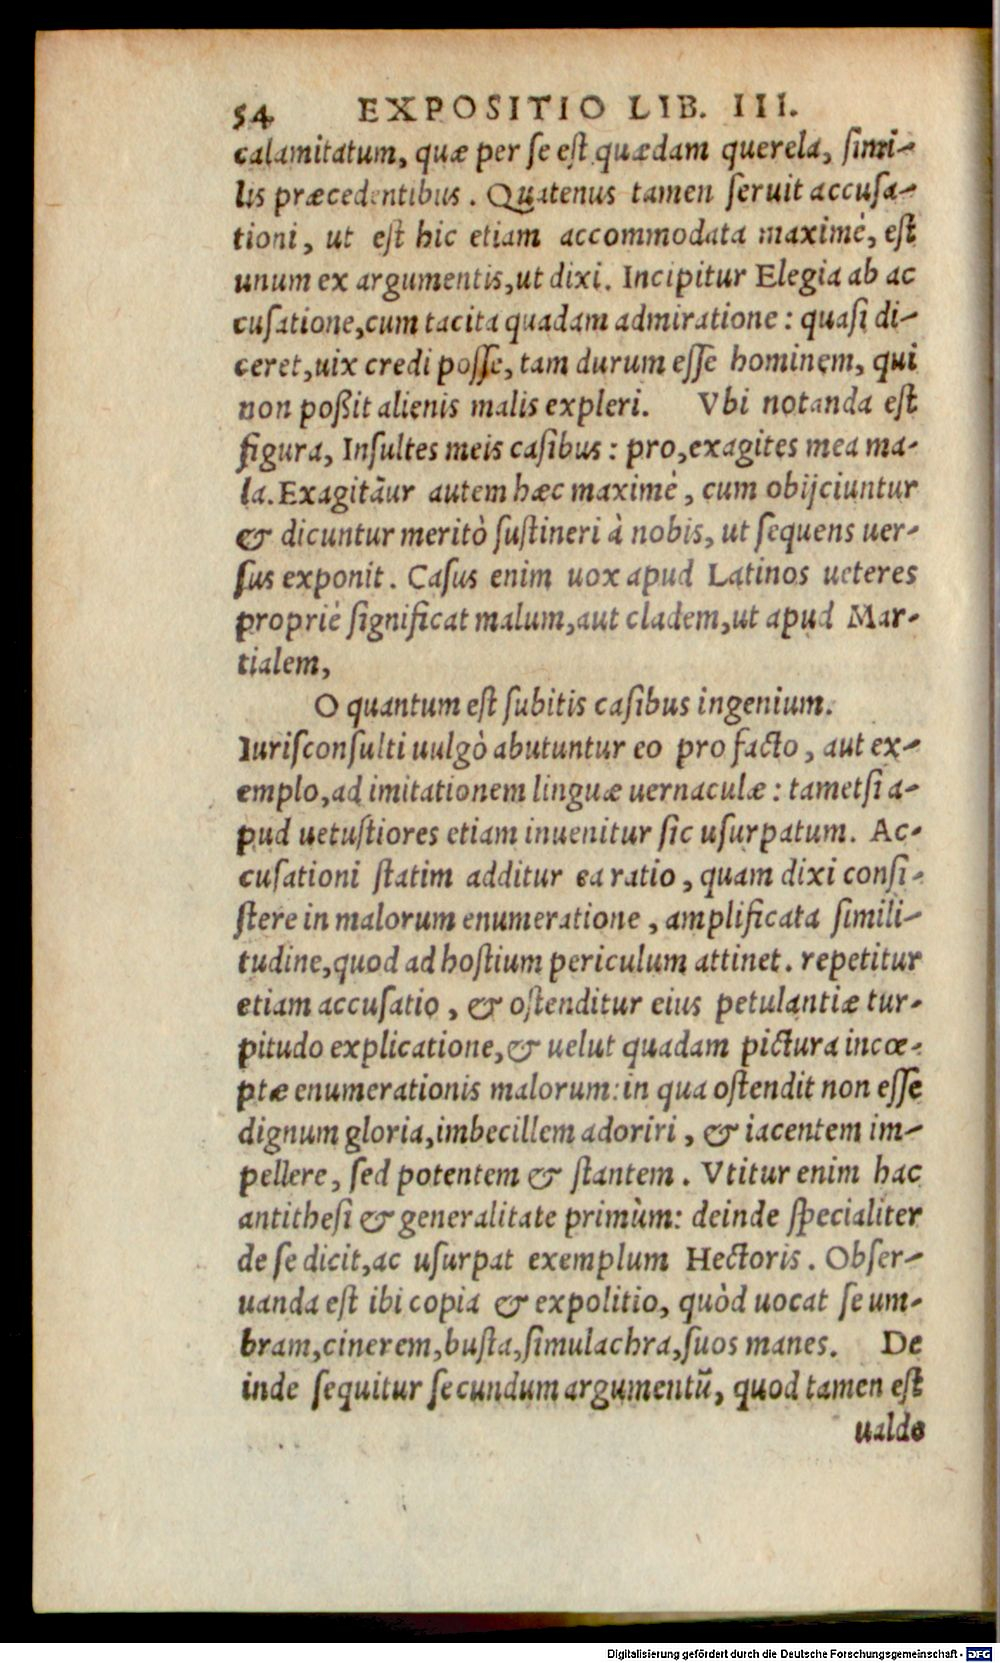 54 EXPOSITIO LIB. III.
calamitatum, quæ per ſe eſt quædam querela, ſimi-
lis præcedentibus. Quatenus tamen ſeruit accuſa-
tioni, ut eſt hic etiam accommodata maximè, eſt
unum ex argumentis, ut dixi. Incipitur Elegia ab ac
cuſatione, cum tacita quadam admiratione: quaſi di-
ceret, uix credi poſſe, tam durum eſſe hominem, qui
non poßit alienis malis expleri. Vbi notanda eſt
figura, Inſultes meis caſibus: pro, exagites mea ma-
la. Exagitãur autem hæc maximè, cum obijciuntur
& dicuntur meritò ſuſtineri à nobis, ut ſequens uer-
ſus exponit. Caſus enim uox apud Latinos ueteres
propriè ſignificat malum, aut cladem, ut apud Mar-
tialem,
O quantum eſt ſubitis caſibus ingenium.
Iuriſconſulti uulgò abutuntur eo pro facto, aut ex-
emplo, ad imitationem linguæ uernaculæ: tametſi a-
pud uetuſtiores etiam inuenitur ſic uſurpatum. Ac-
cuſationi ſtatim additur ea ratio, quam dixi conſi-
ſtere in malorum enumeratione, amplificata ſimili-
tudine, quod ad hoſtium periculum attinet. repetitur
etiam accuſatio, & oſtenditur eius petulantiæ tur-
pitudo explicatione, & uelut quadam pictura incœ-
ptæ enumerationis malorum: in qua oſtendit non eſſe
dignum gloria, imbecillem adoriri, & iacentem im-
pellere, ſed potentem & ſtantem. Vtitur enim hac
antitheſi & generalitate primùm: deinde ſpecialiter
de ſe dicit, ac uſurpat exemplum Hectoris. Obſer-
uanda eſt ibi copia & expolitio, quòd uocat ſe um-
bram, cinerem, buſta, ſimulachra, ſuos manes. De
inde ſequitur ſecundum argumentũ, quod tamen eſt
ualde
Digitalisierung gefördert durch die Deutsche Forschungsgemeinschaft - DFG